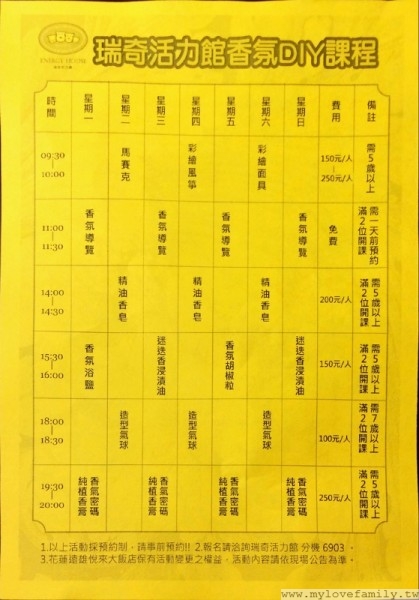 瑞奇活力館香氛DIY課程
時間 星期一 星期二 星期三 星期四 星期五 星期六 星期日 費用 備註
09:30 | 10:00 馬賽克 彩繪風箏 彩繪面具 150元/人 | 250元/人 需5歲以上
11:00 | 11:30 香氛導覽 香氛導覽 香氛導覽 香氛導覽 免費 需一天前預約 滿2位開課
14:00 | 14:30 精油香皂 精油香皂 精油香皂 200元/人 需5歲以上 滿2位開課
15:30 | 16:00 香氛浴鹽 迷迭香浸漬油 香氛胡椒粒 迷迭香浸漬油 150元/人 需5歲以上 滿2位開課
18:00 | 18:30 造型氣球 造型氣球 造型氣球 100元/人 需7歲以上 滿2位開課
19:30 | 20:00 香氣密碼 純植香膏 香氣密碼 純植香膏 香氣密碼 純植香膏 香氣密碼 純植香膏 250元/人 需5歲以上 滿2位開課
1.以上活動採預約制，請事前預約!! 2.報名請洽詢瑞奇活力館 分機 6903。
3.花蓮遠雄悅來大飯店保有活動變更之權益，活動內容請依現場公告為準。
www.mylovefamily.tw